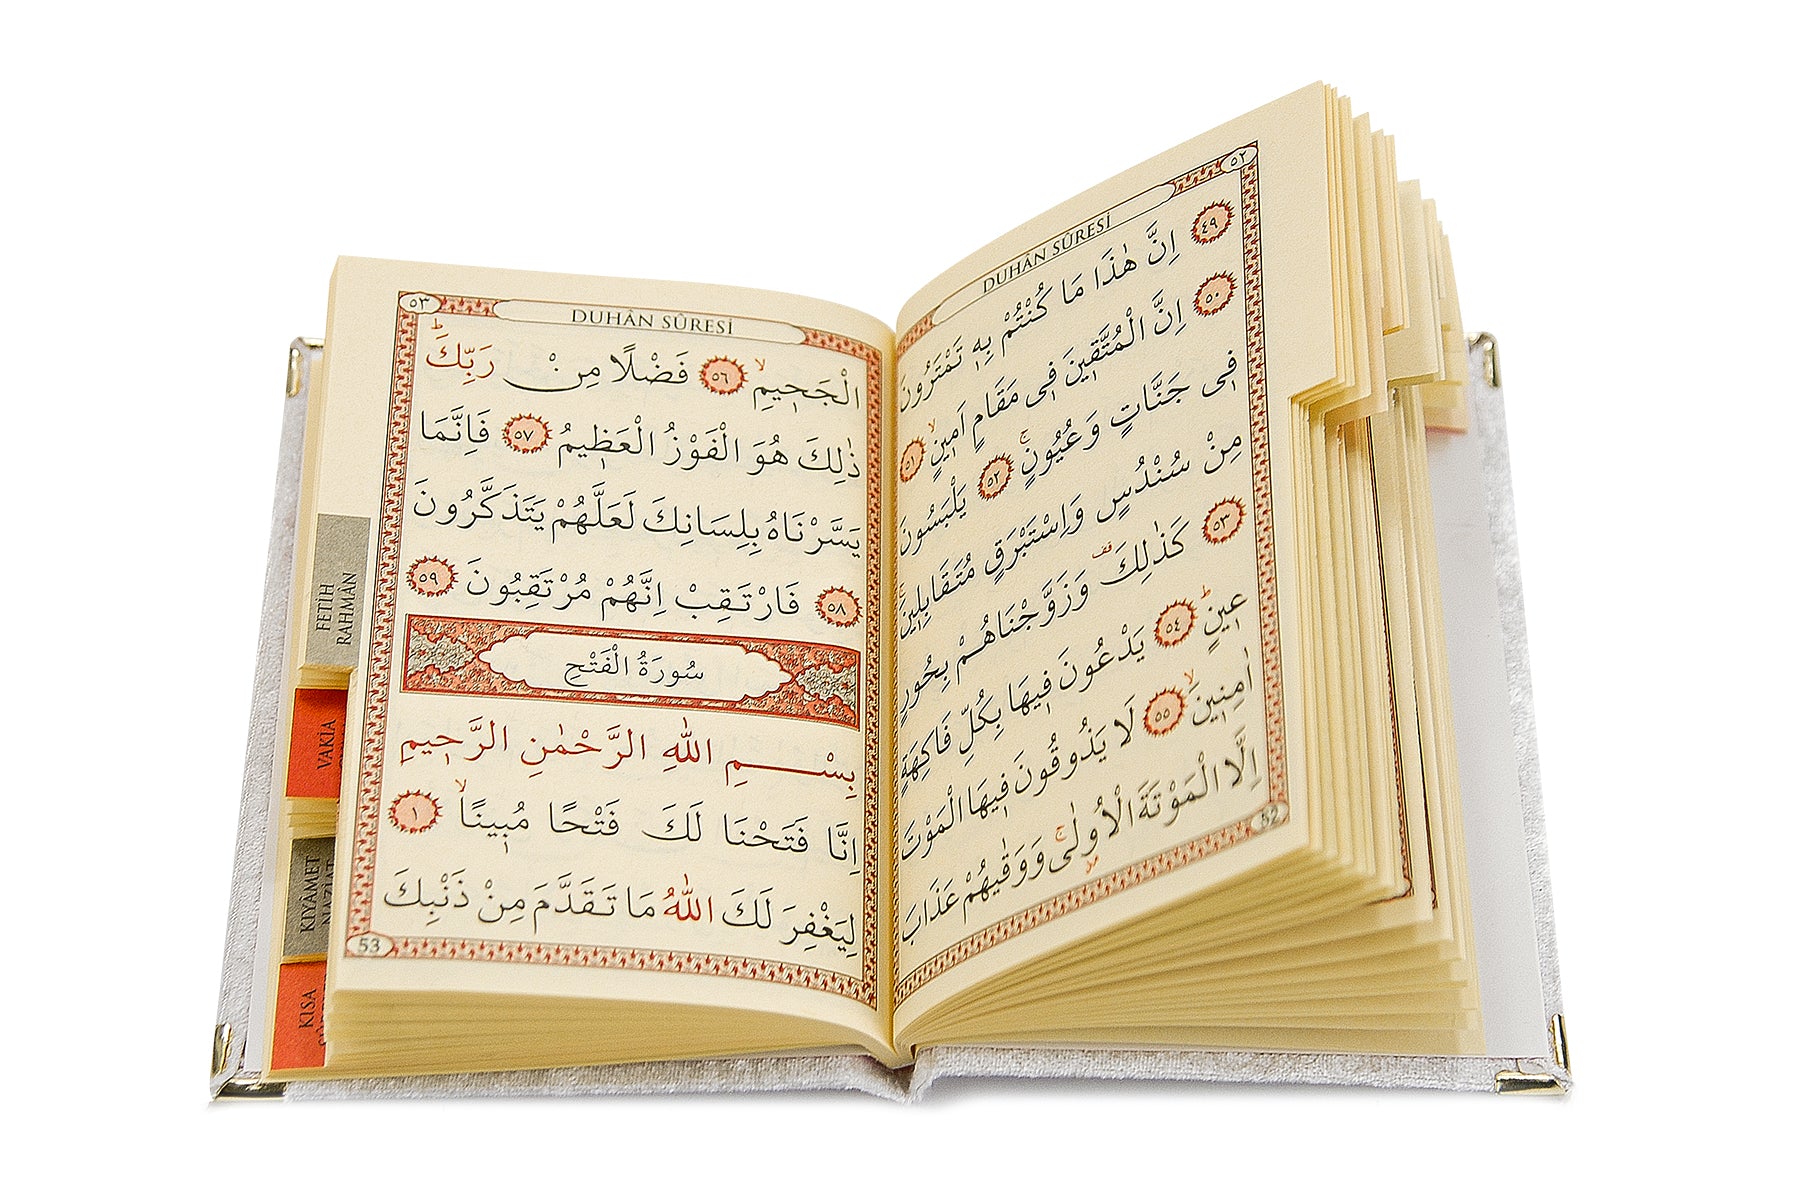 ٥٢
DUHÂN SÛRESİ
٤٩ اِنَّ هٰذَا مَا كُنْتُمْ بِهٖ تَمْتَرُونَ
٥٠ اِنَّ الْمُتَّقٖينَ فٖى مَقَامٍ اَمٖينٍۙ ٥١
فٖى جَنَّاتٍ وَعُيُونٍۚ ٥٢ يَلْبَسُونَ
مِنْ سُنْدُسٍ وَاِسْتَبْرَقٍ مُتَقَابِلٖينَۚ
٥٣ كَذٰلِكَ۠ وَزَوَّجْنَاهُمْ بِحُورٍ
عٖينٍؕ ٥٤ يَدْعُونَ فٖيهَا بِكُلِّ فَاكِهَةٍ
اٰمِنٖينَۙ ٥٥ لَا يَذُوقُونَ فٖيهَا الْمَوْتَ
اِلَّا الْمَوْتَةَ الْاُولٰىۚ وَوَقٰيهُمْ عَذَابَ
52
٥٣
DUHÂN SÛRESİ
الْجَحٖيمِۙ ٥٦ فَضْلًا مِنْ رَبِّكَؕ
ذٰلِكَ هُوَ الْفَوْزُ الْعَظٖيمُ ٥٧ فَاِنَّمَا
يَسَّرْنَاهُ بِلِسَانِكَ لَعَلَّهُمْ يَتَذَكَّرُونَ
٥٨ فَارْتَقِبْ اِنَّهُمْ مُرْتَقِبُونَ ٥٩
سُورَةُ الْفَتْحِ
بِسْمِ اللّٰهِ الرَّحْمٰنِ الرَّحٖيمِ
اِنَّا فَتَحْنَا لَكَ فَتْحًا مُبٖينًاۙ ١
لِيَغْفِرَ لَكَ اللّٰهُ مَا تَقَدَّمَ مِنْ ذَنْبِكَ
53
FETİH
RAHMÂN
VAKİA
KIYÂMET
KISA